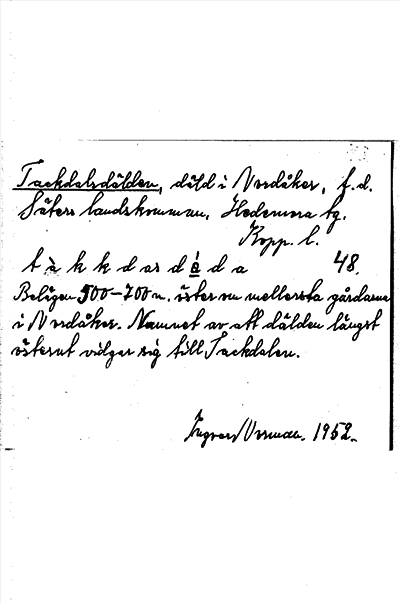 Tackdalsdälden, däld i Nordåker, f.d.
Säters landskommun. Hedemora tg.
Kopp. l.
t à k k d as d é d a 48.
Belägen 500-700 m. öster om mellersta gårdarna
i Nordåker. Namnet av att dälden längst
österut vidgar sig till Tackdalen.
Ingvar Norman. 1952.